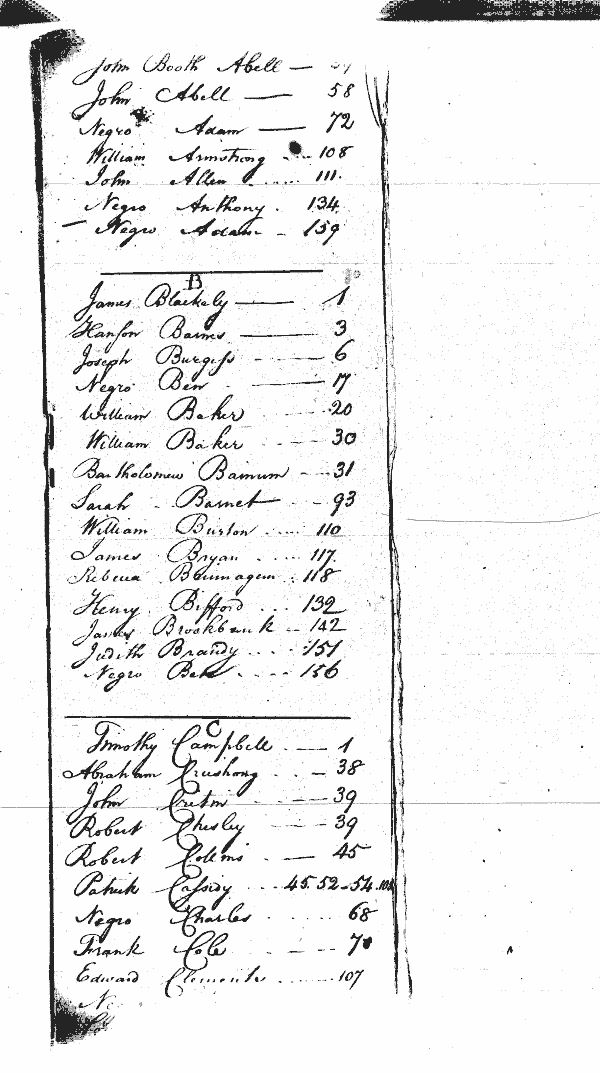 John Booth Abell —
John Abell — 58
Negro Adam — 72
William Armstrong ... 108
John Allen ..... 111.
Negro Anthony . 134
— Negro Adam – 159
B
James Blackely — 1
Hanson Barnes — 3
Joseph Burgess 6
Negro Ben — 17
William Baker 20
William Baker 30
Bartholomew Barnum 31
Sarah Barnet 93
William Burton 110
James Bryan 117.
Rebecca 118
Henry Bifford 132
James Brookbank 142
Judith Brandy 151
Negro 156
C
Timothy Campbell . — 1
Abraham Crushong – 38
John 39
Robert Chesley 39
Robert — 45
Patrick Cassidy 45. 52 - 54.
Negro Charles 68
Frank Cole
Edward Clements 107